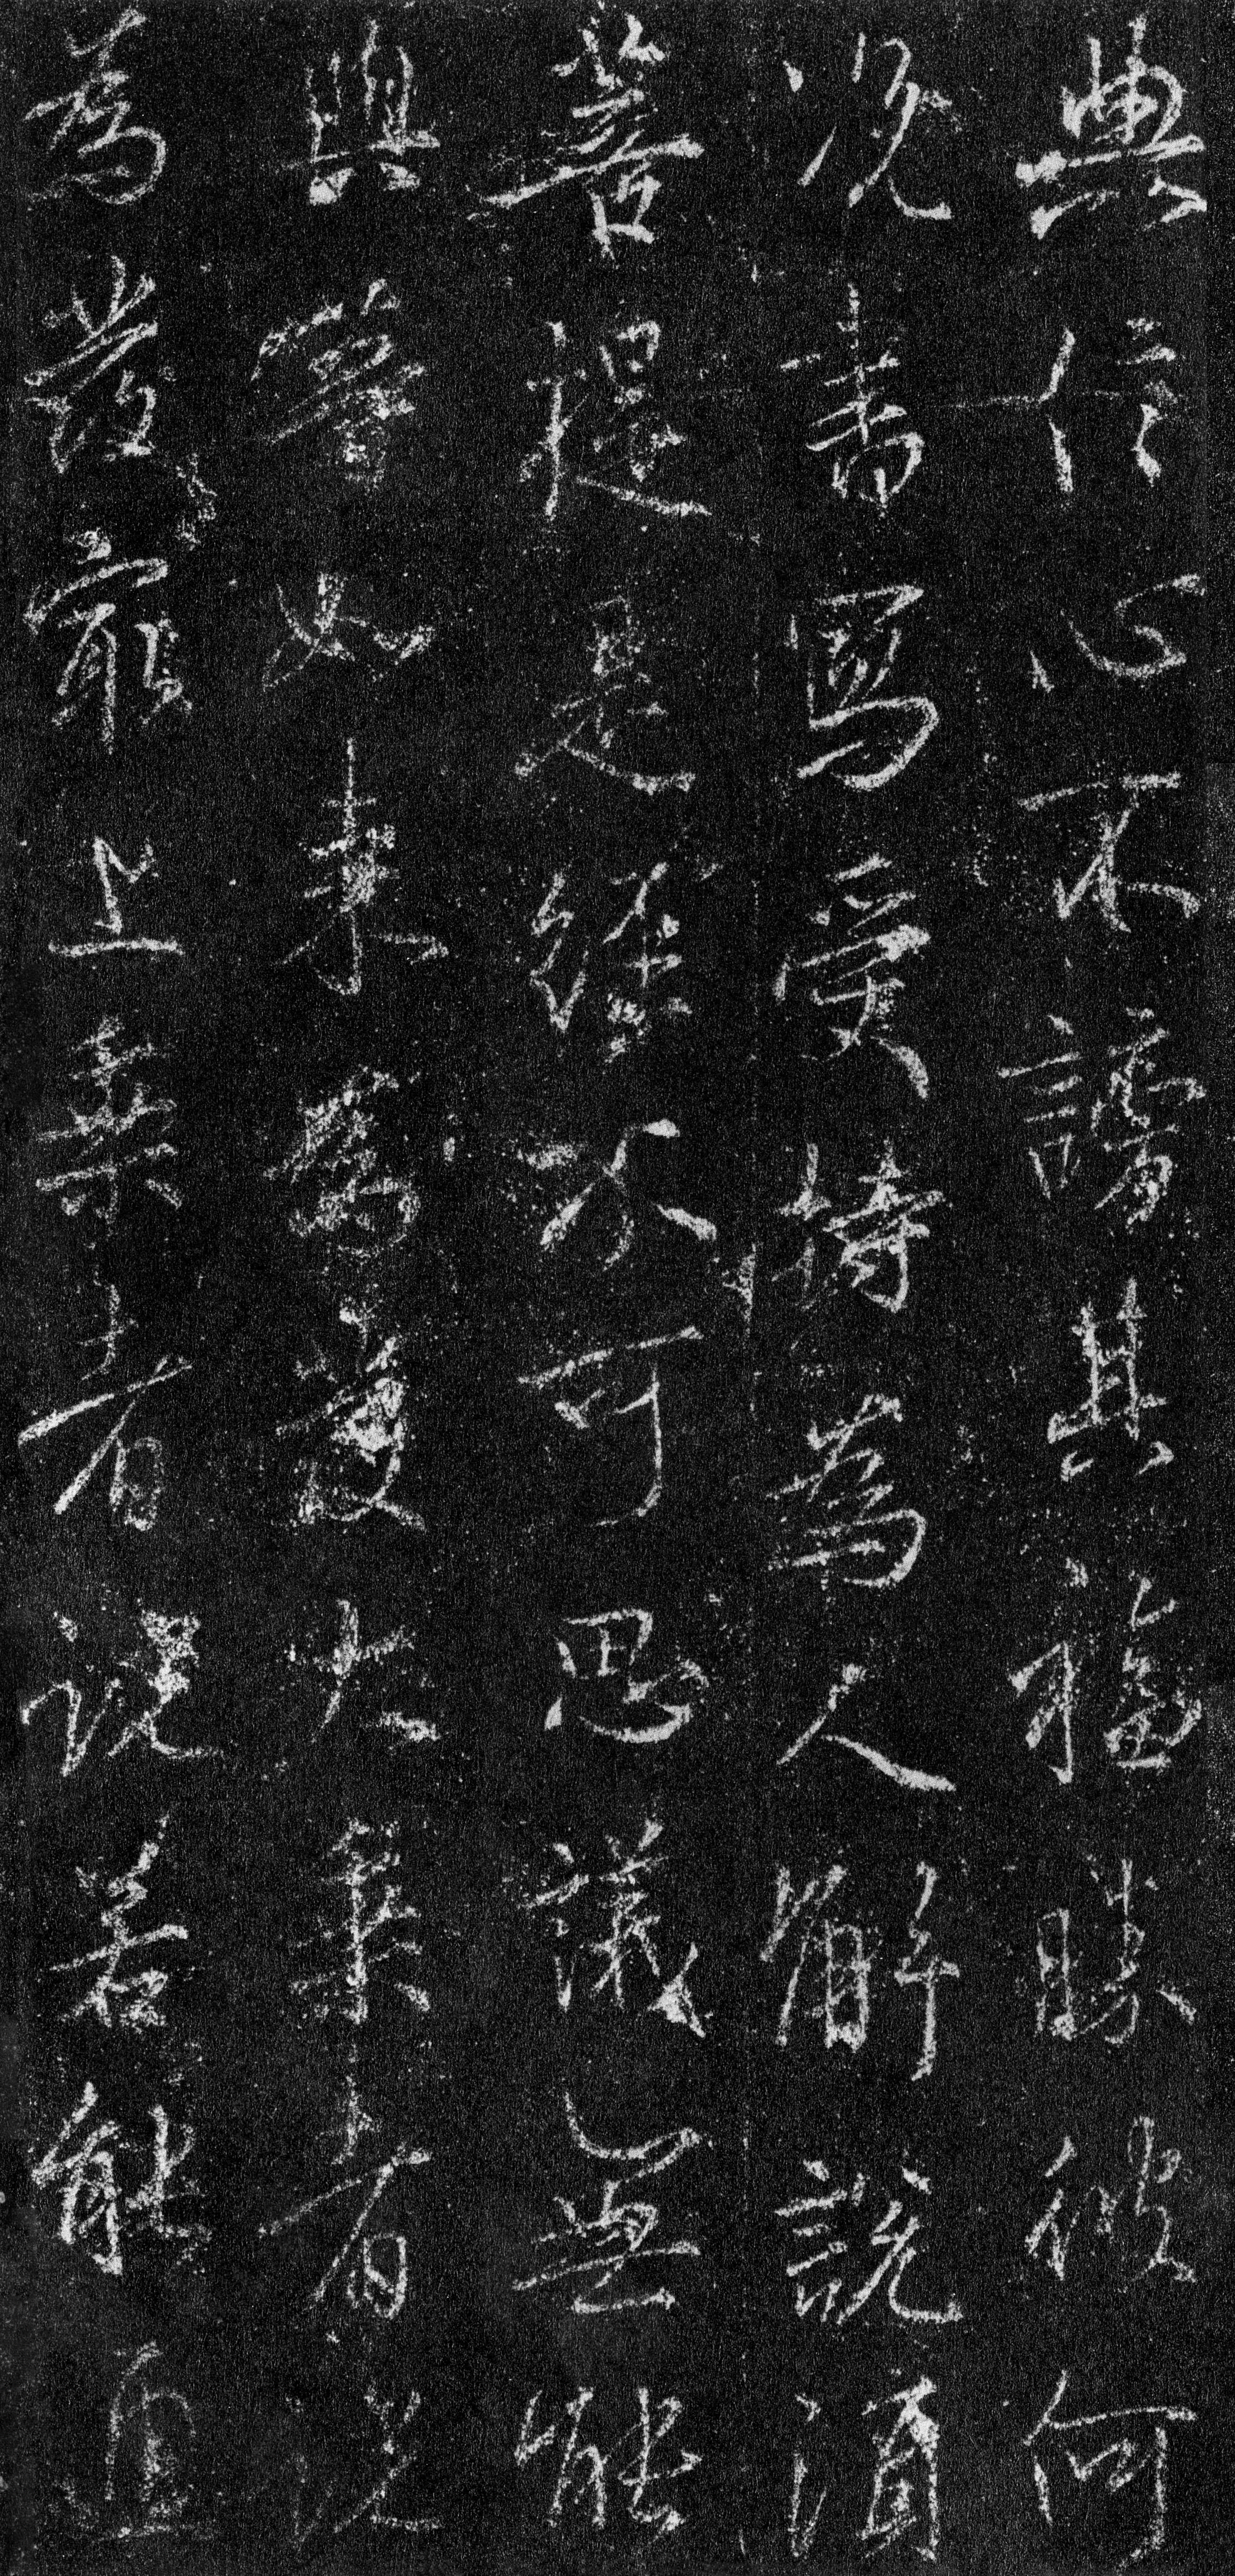 典信心不謗其福勝彼何
況書寫受持為人解說須
菩提是經不可思議無能
與等如來為發大乘者說
為發最上乘者說若能